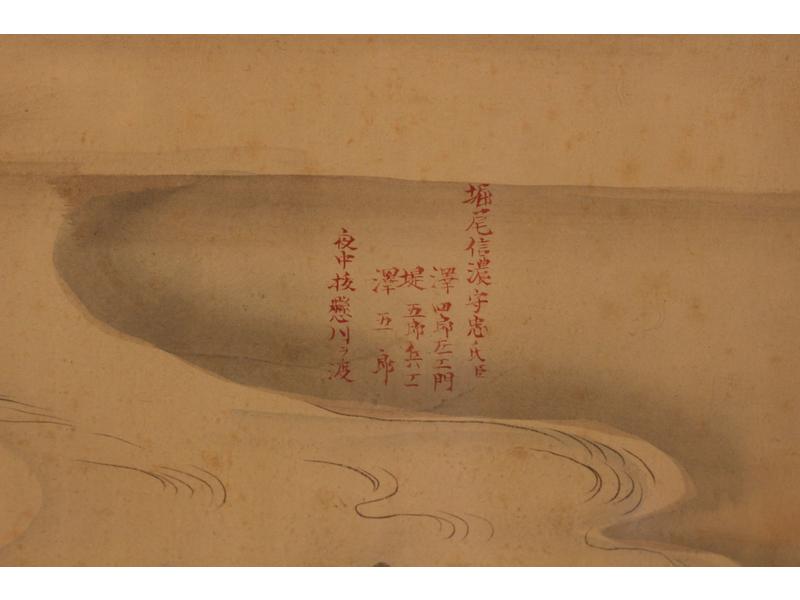 堀尾信濃守忠氏臣
澤四郎左エ門
堤五郎兵ヱ
澤五郎
夜中抜懸川ヲ渡